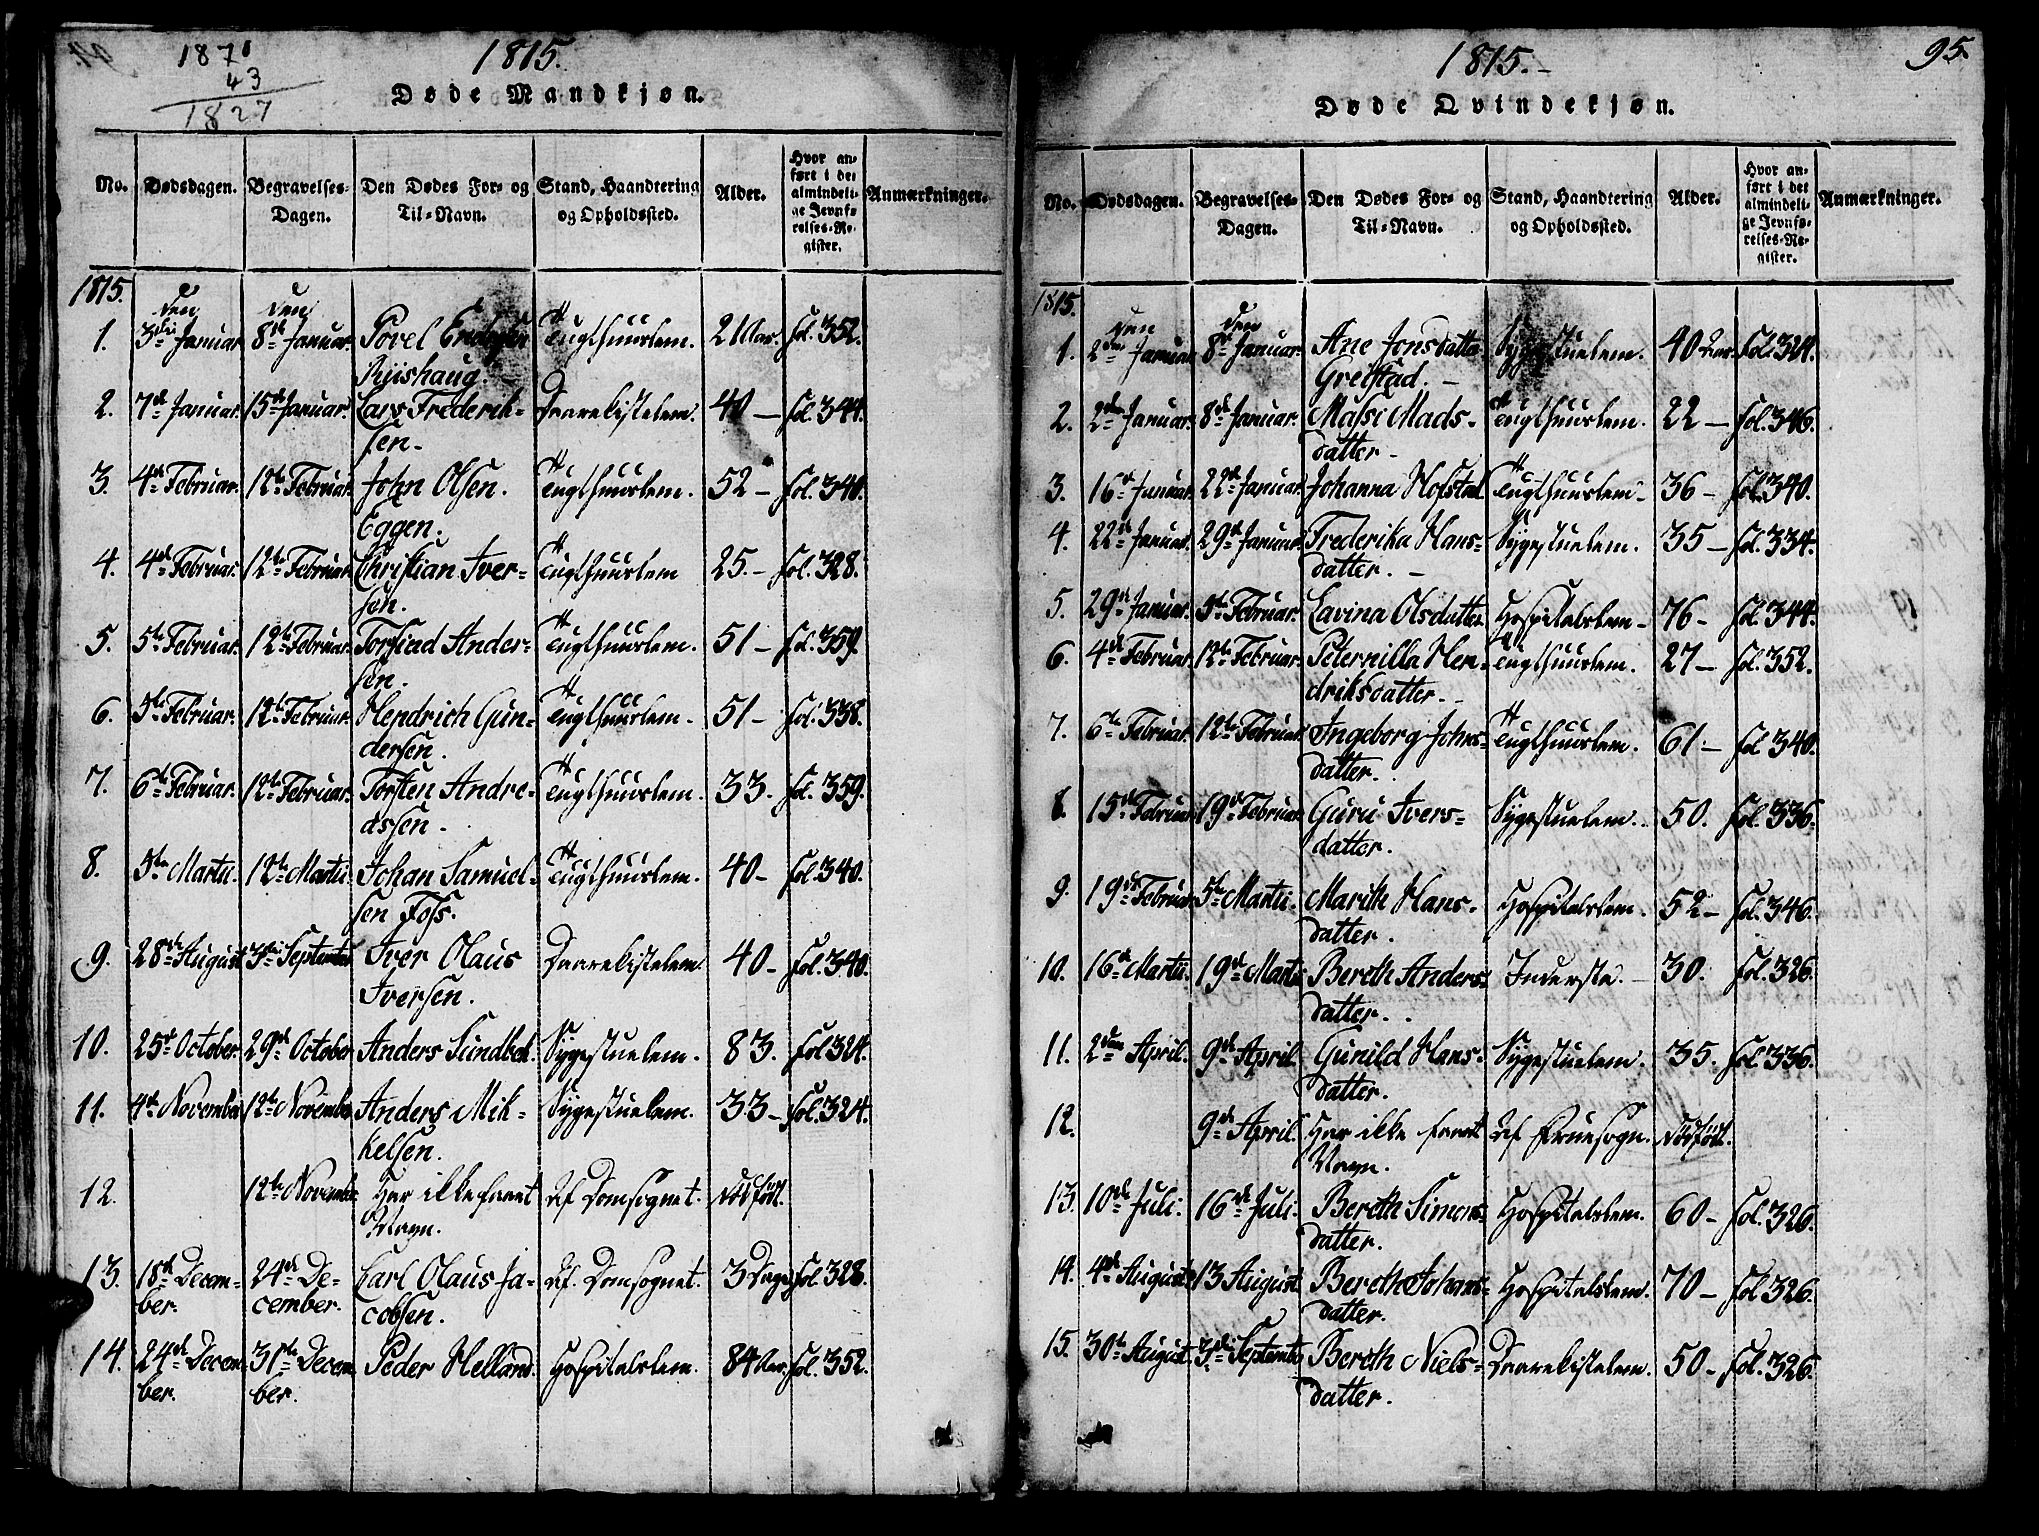 1871
43
1827
1815.
Døde Mandkjøn.
No. Dødsdagen. Begravelses-Dagen. Den Dødes For- og Til-Navn. Stand, Haandtering og Opholdssted. Alder. Hvor anført i det almindelige Jevnførelses-Register. Anmærkninger.
1815.
1. den 3die Januar den 8de Januar. Povel Rijshaug. Tugthuuslem. 21 Aar. fol. 352.
2. 7de Januar. 15de Januar. Lars Frederiksen. Daarekistelem. 40 — fol 344.
3. 4de Februar. 12te Februar. John Olsen Eggen. Tugthuuslem. 52 — fol. 340.
4. 4de Februar. 12te Februar. Christian Iversen. Tugthuuslem 25. — fol. 328.
5. 5te Februar. 12te Februar. Torstad Andersen. Tugthuuslem. 51 — fol. 359.
6. 5te Februar. 12te Februar. Hendrich Gundersen. Tugthuuslem. 51 — fol. 338.
7. 6te Februar. 12te Februar. Torsten Andreassen. Tugthuuslem. 33. fol. 359.
8. 5te Martii. 12te Martii. Johan Samuelsen Foss. Tugthuuslem. 40 — fol. 340.
9. 28de August 3die September Iver Olaus Iversen. Daarekistelem. 40 — fol. 340.
10. 25de October. 29de October Anders Sundbek. Sygestuelem. 83. fol 324.
11. 4de November 12te November Anders Mikkelsen. Sygestuelem. 33 — fol. 324.
12. 12te November Har ikke faaet Navn. Af Domsognet. Dödfödt.
13. 18de December. 24de December. Carl Olaus Jacobsen. Af Domsognet. 3 Dage fol. 328.
14. 24de December. 31te December. Peder Helland. Hospitalslem. 84 Aar. fol. 352.
1815. —
95
Døde Qvindekjøn.
No. Dødsdagen. Begravelses-Dagen. Den Dødes For- og Til-Navn. Stand, Haandtering og Opholdssted. Alder. Hvor anført i det almindelige Jevnførelses-Register. Anmærkninger.
1815.
1. den 2den Januar den 8de Januar. Ane Jonsdatter Grefstad. — Sygestuelem. 40 Aar. fol 324.
2. 2den Januar. 8de Januar. Massi Madsdatter — Tugthuuslem. 22 — fol. 346.
3. 16de Januar. 22de Januar. Johanna Hofstad Tugthuuslem 36 — fol. 340.
4. 22de Januar. 29de Januar Frederika Hansdatter. — Sygestuelem. 35 — fol. 334.
5. 29de Januar. 5te Februar. Lavina Olsdatter Hospitalslem 76 — fol. 344.
6. 4de Februar. 12te Februar. Peternilla Hendriksdatter. — Tugthuuslem. 27 — fol. 352.
7. 6te Februar. 12te Februar. Ingeborg Johnsdatter. Tugthuuslem. 61. — fol 340.
8. 15de Februar 19de Februar. Guru Iversdatter. Sygestuelem. 50. fol. 336.
9. 19de Februar 5te Martii. Marith Hansdatter. Hospitalslem. 52 — fol. 346.
10. 16de Martii. 19de Martii Bereth Andersdatter. Inderste. — 30. fol. 326.
11. 2den April. 9de April Gunild Hansdatter. Sygestuelem. 35. fol. 336.
12. 9de April. Har ikke faaet Navn. Af Fruesogn. Dödfödt.
13. 10de Juli. 16de Juli. Bereth Simonsdatter. Hospitalslem. 60 — fol. 326.
14. 4de August 13 August. Bereth Johansdatter. Hospitalslem. 70 — fol 326.
15. 30te August. 3die September Bereth Nielsdatter. Daarekistelem. 50 — fol. 326.